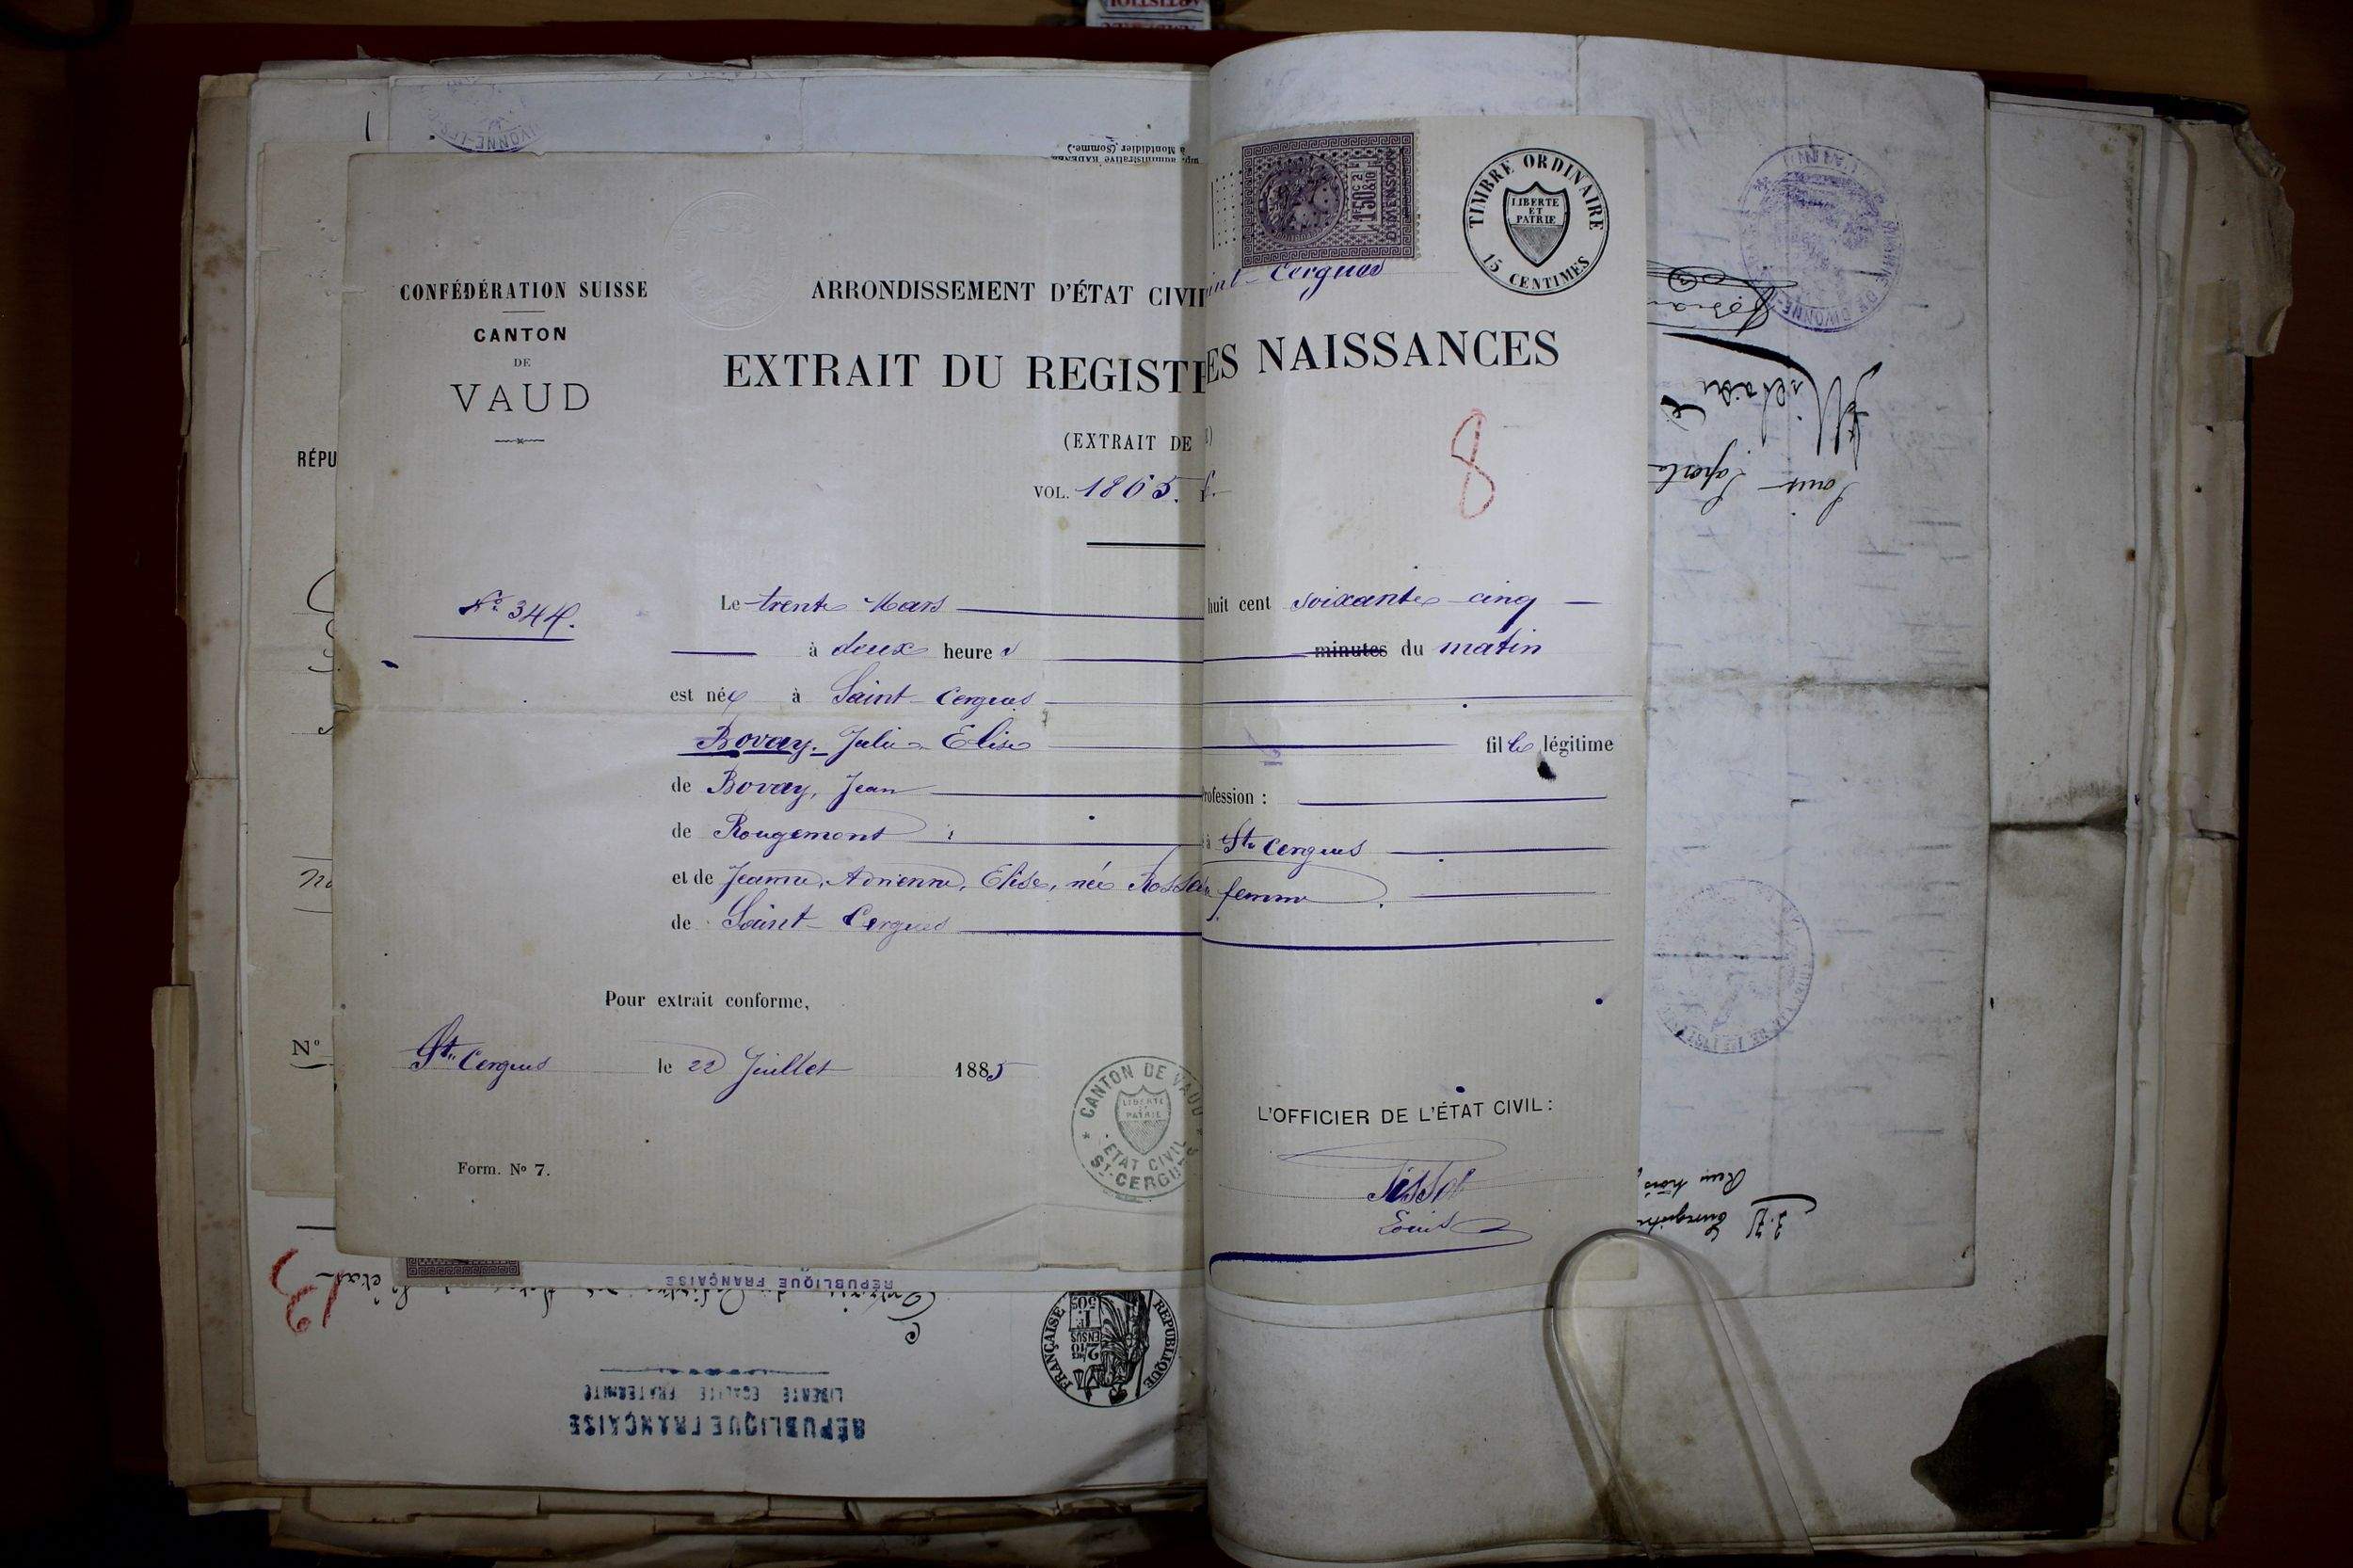 CONFÉDÉRATION SUISSE
CANTON
DE
VAUD
ARRONDISSEMENT D'ÉTAT CIVIL
Cergues
TIMBRE ORDINAIRE
LIBERTE
ET
PATRIE
15 CENTIMES
DIMENSION
EXTRAIT DU REGIST
ES NAISSANCES
(EXTRAIT DE
VOL. 1865.
8
RÉPU
No. 344.
Le trente Mars huit cent soixante-cinq
à deux heures minutes du matin
est née à Saint-Cergues
Bovay. Julie Elise fille légitime
de Bovay, Jean
rofession :
de Rougemont à St. Cergues
et de Jeanne, Adrienne, Elise, née femme
de Saint-Cergues
Pour extrait conforme,
N°
St. Cergues le 22 Juillet 1885
CANTON DE VAUD
LIBERTE
ET
PATRIE
ETAT CIVIL
ST-CERGUES
L'OFFICIER DE L'ÉTAT CIVIL :
Tissot
Louis
Form. No 7.
13
REPUBLIQUE FRANÇAISE
REPUBLIQUE FRANÇAISE
LIBERTE EGALITE FRATERNITE
RÉPUBLIQUE FRANÇAISE